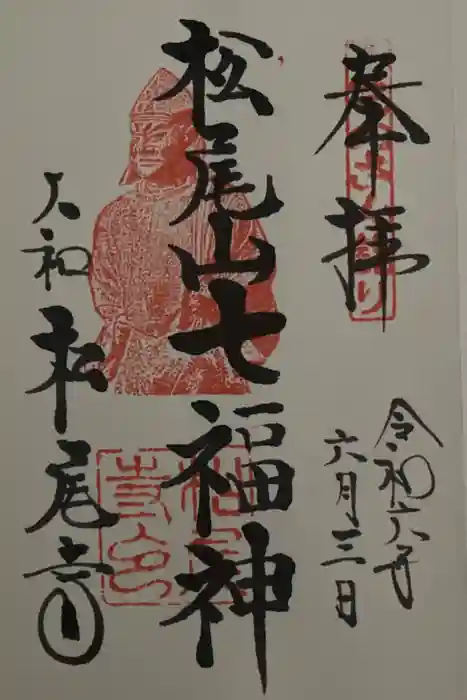 奉拝
令和六年
六月三日
松尾山七福神
大和
松尾寺